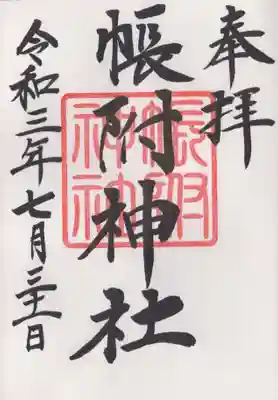 奉拝
帳附神社
令和三年七月三十一日
帳附
神社